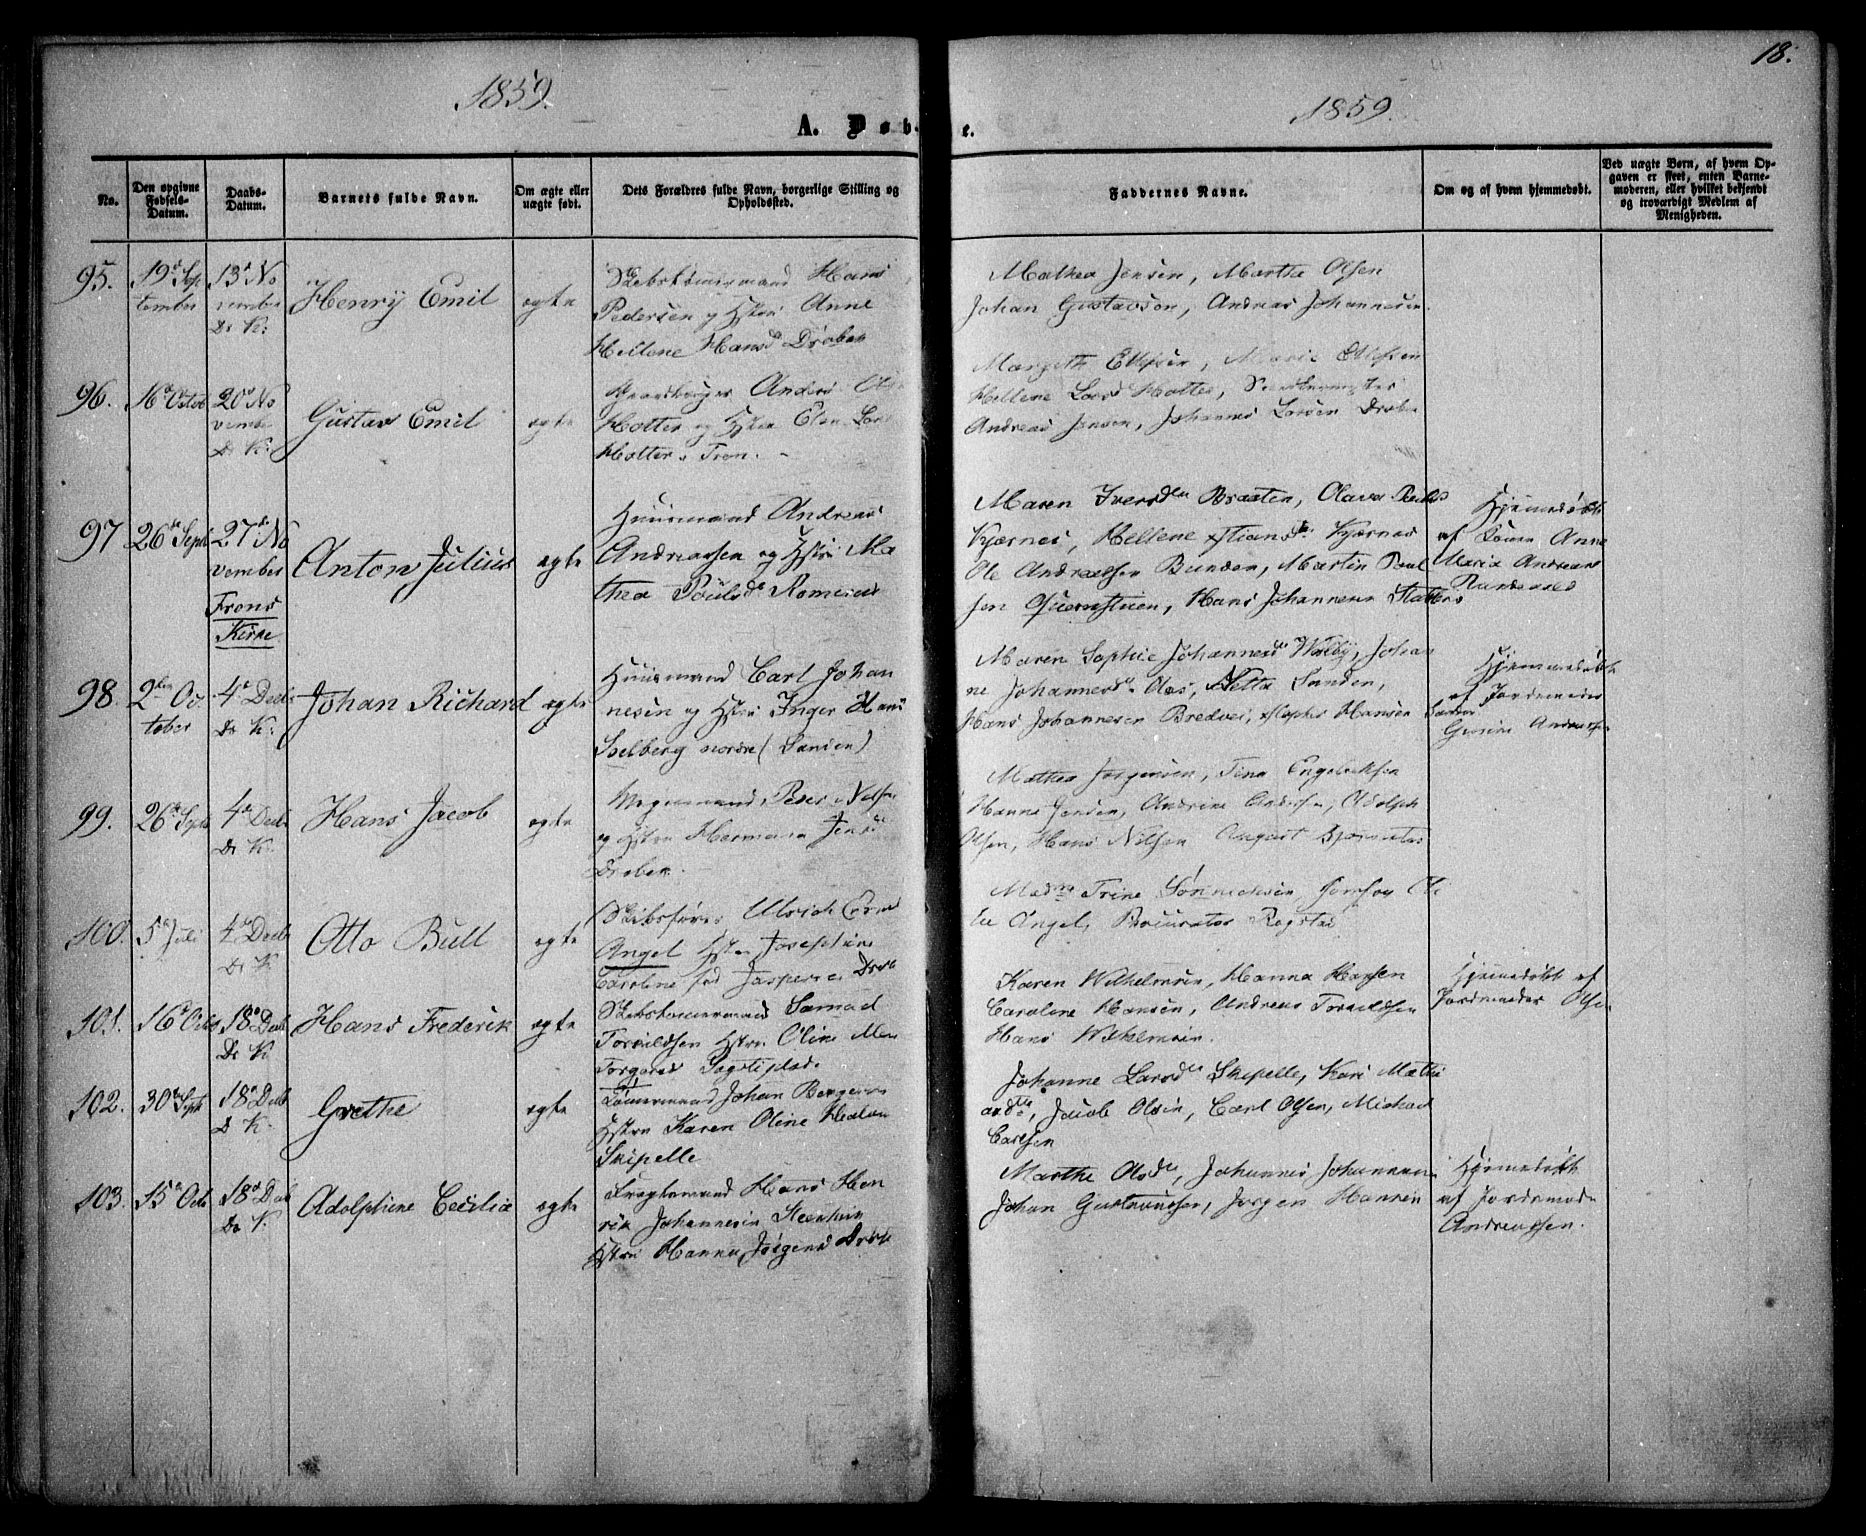 18.
1859.
1859.
A. Døb-
e.
No.
Den opgivne Fødsels-Datum.
Daabs-Datum.
Barnets fulde Navn.
Om ægte eller uægte født.
Dets Forældres fulde Navn, borgerlige Stilling og Opholdssted.
Faddernes Navne.
Om og af hvem hjemmedøbt.
Ved uægte Børn, af hvem Opgaven er skeet, enten Barnemoderen, eller hvilket bekjendt og troværdigt Medlem af Menigheden.
95.
19de Sep
tember
13de No
vember
Dr K.
Henry Emil
ægte
Skibstømermand Hans
Pedersen og Hstru Anne
Hellene Hansd Drøbak
Mathea Jensen, Marthe Olsen
Johan Gustavson, Andreas Johannesen.
96.
16de Octob
20de No
vembe
Dr K.
Gustav Emil
ægte
Gaardbruger Anders
Hotter og Hstru Elen Lars
Hotter i Fron.
Margith Ellefsen, Marie
Hellene Larsd Hotter,
Andreas Jensen, Johannes Larsen Drøba
97
26de Septb
27de No
vember
Frons
Kirke
Anton Julius
ægte
Huusmand Andreas
Andreassen og Hstru Ma
thea Poulsd
Maren Iversdtr Braaten, Olava
Kjærnes, Hellene Xstiansd. Kjærnes
Ole Andreassen Bunden, Martin Poul
sen, Hans Johannesen
Hjemmedøbt
af Konen Anne
Maria Andreas
98.
2den Oc
tober
4de Decbr
Dr K.
Johan Richard
ægte
Huusmand Carl Johan
nesen og Hstru Inger Hans
Skelberg nordre (Sanden)
Maren Sophie Johannesd Walby, Johan
ne Johannesd. Aas, Netta Sanden,
Hans Johannesen Bredvei, Hansen
Hjemmedøbt
af Jordemoder
Andreassen
99.
26de Septb
4de Decbr
Dr K.
Hans Jacob
ægte
Vognmand Peder Nilsen
og Hstru Hermana Jensd
Drøbak.
Mathea Jørgensen, Tina Engebretsen
Hanna Jensen, Andrine Andersen, Adolph
Olsen, Hans Nilsen August
100.
5te Juli
4de Decbr
Dr K
Otto Bull
ægte
Skibsfører Ulrich
Angel Hstru Josephine
Caroline fød Jespersen Drøb
Madm Trine Sønnichsen, Jomfru
Angel, Procurator
101.
16de Octb
18de Decb
Dr K
Hans Frederik
ægte
Skibstømermand
Torkildsen Hstru Oline
Karen Wilhelmsen, Hanna Hansen
Caroline Hansen, Andreas Torkildsen
Hans Wilhelmsen.
Hjemmedøbt af
Jordmoder Olsen.
102.
30de Septb
18de Decb
Dr K.
Grethe
ægte
Tømermand Johan
Hstru Karen Oline
Skipelle
Johanne Larsdtr Skipelle, Kari Mathi
asdtr, Jacob Olsen, Carl Olsen, Michael
Carlsen
103.
15de Octb
18de Decb
Dr K.
Adolphine Cecilia
ægte
Fragtemand Hans Hen
rik Johannesen
Hstru Hanna Jørgensd Drøb
Marthe Olsdtr, Johannes Johannesen
Johan Gustavusen, Jørgen Hansen
Hjemmedøbt
af Jordemode
Andreassen.